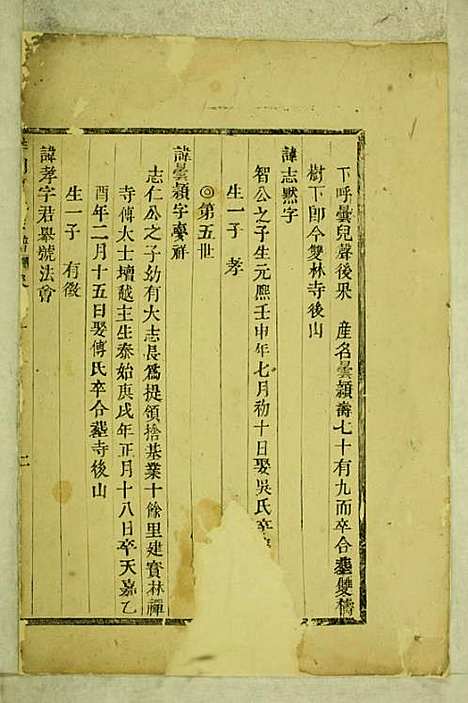 下呼曇兒聲後果 產名曇穎壽七十有九而卒合塟雙檮
樹下卽今雙林寺後山
諱志默字
智公之子生元熈壬申年七月初十日娶吳氏卒
生一子 孝
◎第五世
諱曇穎字慶祥
志仁公之子幼有大志長爲提領捨基業十餘里建寳林禪
寺傅大士壇越主生泰始庚戌年正月十八日卒天嘉乙
酉年二月十五日娶傅氏卒合塟寺後山
生一子 有徵
諱孝字君舉號法會
二